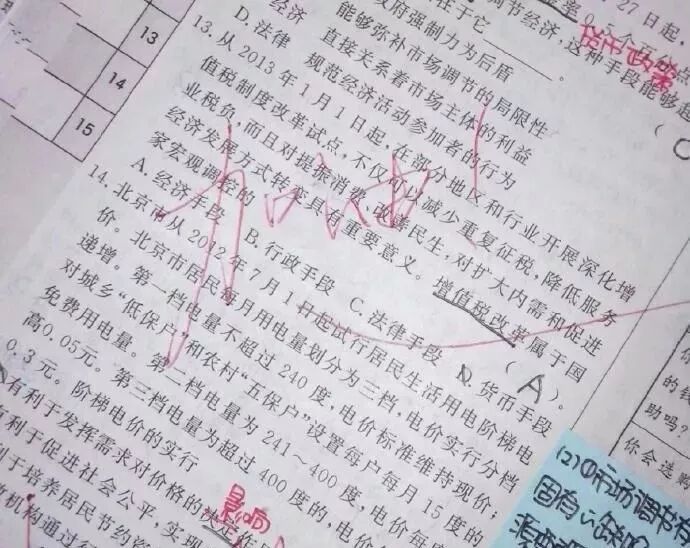 27日起,
0.5个百分点
货币政策
节经济,这种手段能够起
在于它
(C
经济
政府强制力为后盾
能够弥补市场调节的局限性
D.法律
直接关系着市场主体的利益
规范经济活动参加者的行为
13.从2013年1月1日起,在部分地区和行业开展深化增
值税制度改革试点,不仅可以减少重复征税,降低服务
业税负,而且对提振消费、改善民生,对扩大内需和促进
经济发展方式转变具有重要意义。增值税改革属于国
家宏观调控的
(A)。
A.经济手段 B.行政手段 C.法律手段 D.货币手段
14.北京市从2012年7月1日起试行居民生活用电阶梯电
价。北京市居民每月用电量划分为三档,电价实行分档
递增。第一档电量不超过240度,电价标准维持现价;
对城乡“低保户”和农村“五保户”设置每户每月15度的
免费用电量。第二档电量为241~400度,电价每度
高0.05元。第三档电量为超过400度的,电价
0.3元。阶梯电价的实行
有利于发挥需求对价格的决定作
影响
有利于促进社会公平,实现
利于培养居民节约资
机构通过行
13
14
15
你会选购
的
助吗?
(2)市场调节有
固有的缺陷